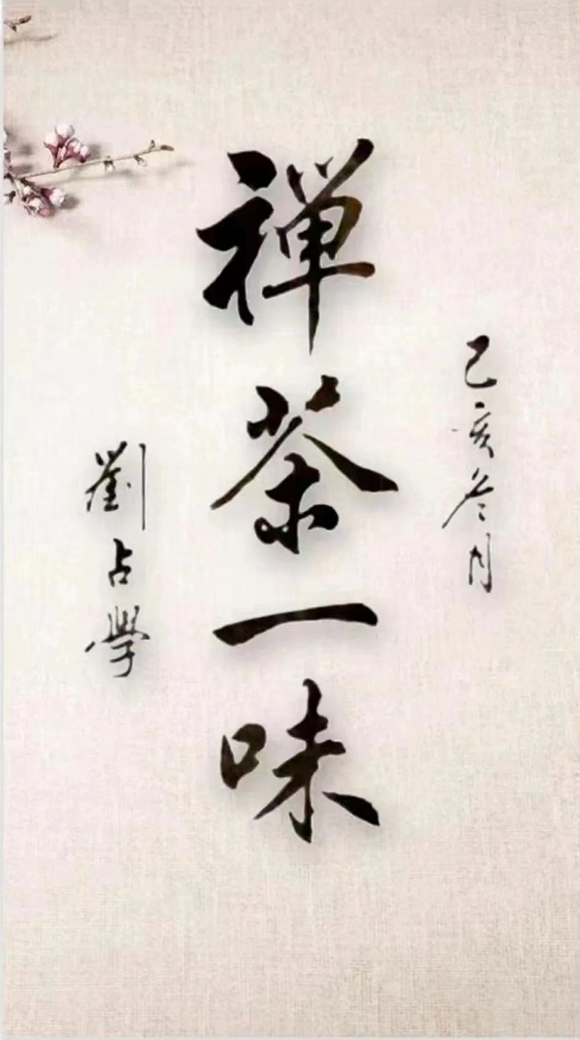 己亥冬月
禅茶一味
劉占學